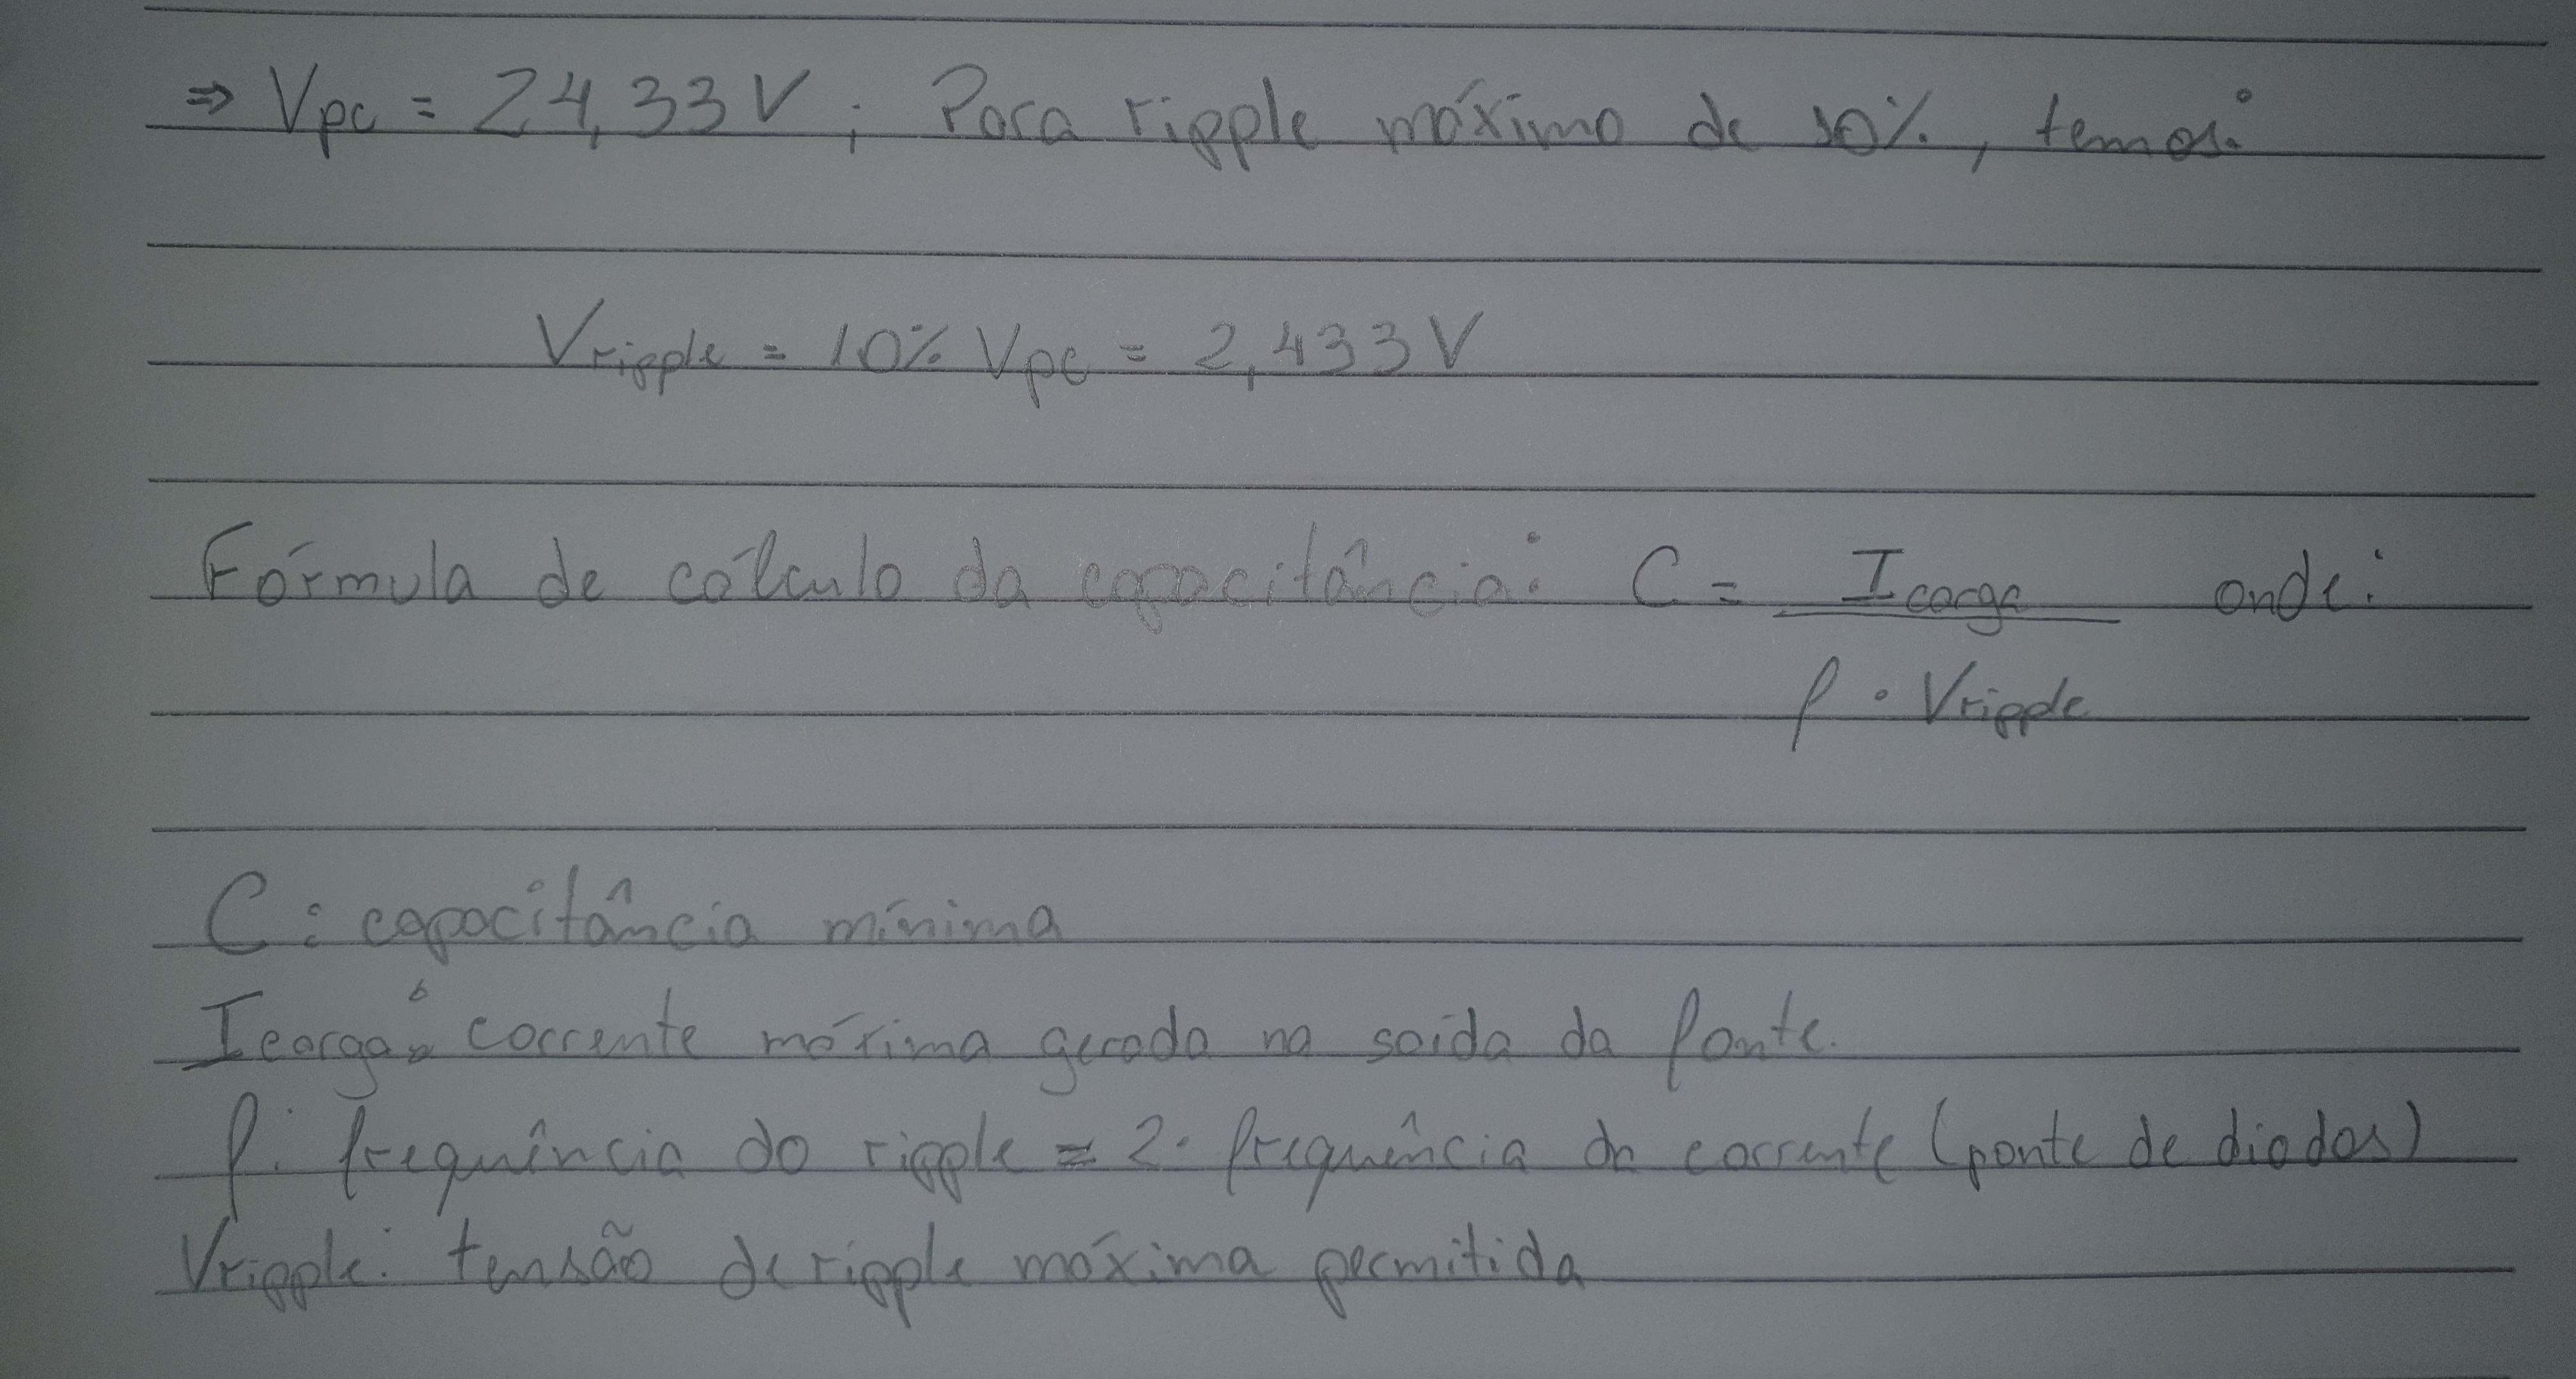 ⇒ Vpc = 24,33 V ; Para ripple máximo de 10%, temos:
Vripple = 10% Vpc = 2,433 V
Fórmula de cálculo da capacitância: C = Icarga onde:
f · Vripple
C: capacitância mínima
Icarga: corrente máxima gerada na saída da fonte.
f: frequência do ripple = 2 · frequência da corrente (ponte de diodos)
Vripple: tensão de ripple máxima permitida